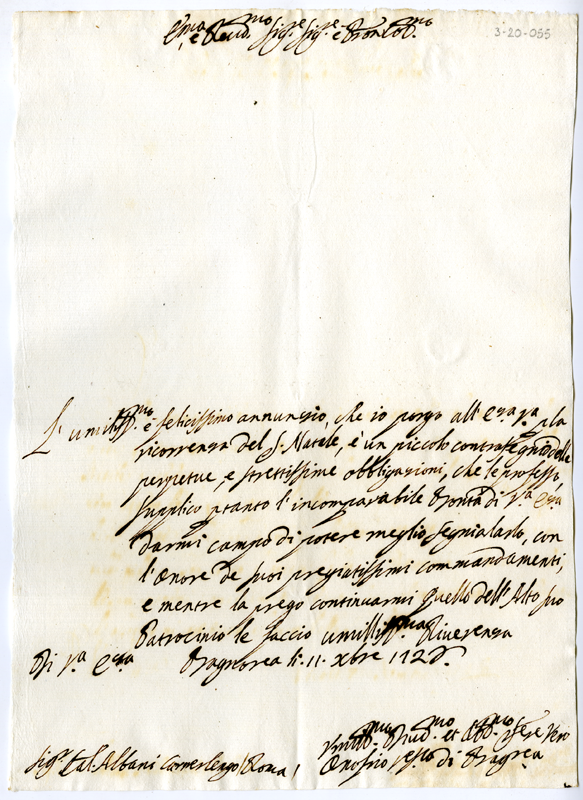 E.mo e Reud.mo Sig.re Sig.re e Pron Col.mo
3-20-055
L' umiliss.mo e felicissimo annunzio, che io porgo all' E.za V.a p la
ricorrenza del S. Natale, è un piccolo contrasegno delle
perpetue, e strettissime obbligazioni, che le professo,
supplico ptanto l' incomparabile Bontà di V.a E.za
darmi campo di potere meglio segnialarlo, con
l' Onore de suoi pregiatissimi commandamenti,
e mentre la prego continuarmi quello dell' Alto suo
Patrocinio le faccio umiliss.ma Riverenza
Di V.a E.za Bagnorea li 11 xbre
Umil.mo Diud.mo et Obb.mo Ser.re Vero
Onofrio Vesc.o di Bagn.a
Sig.r Cal. Albani Camerlengo (Roma)